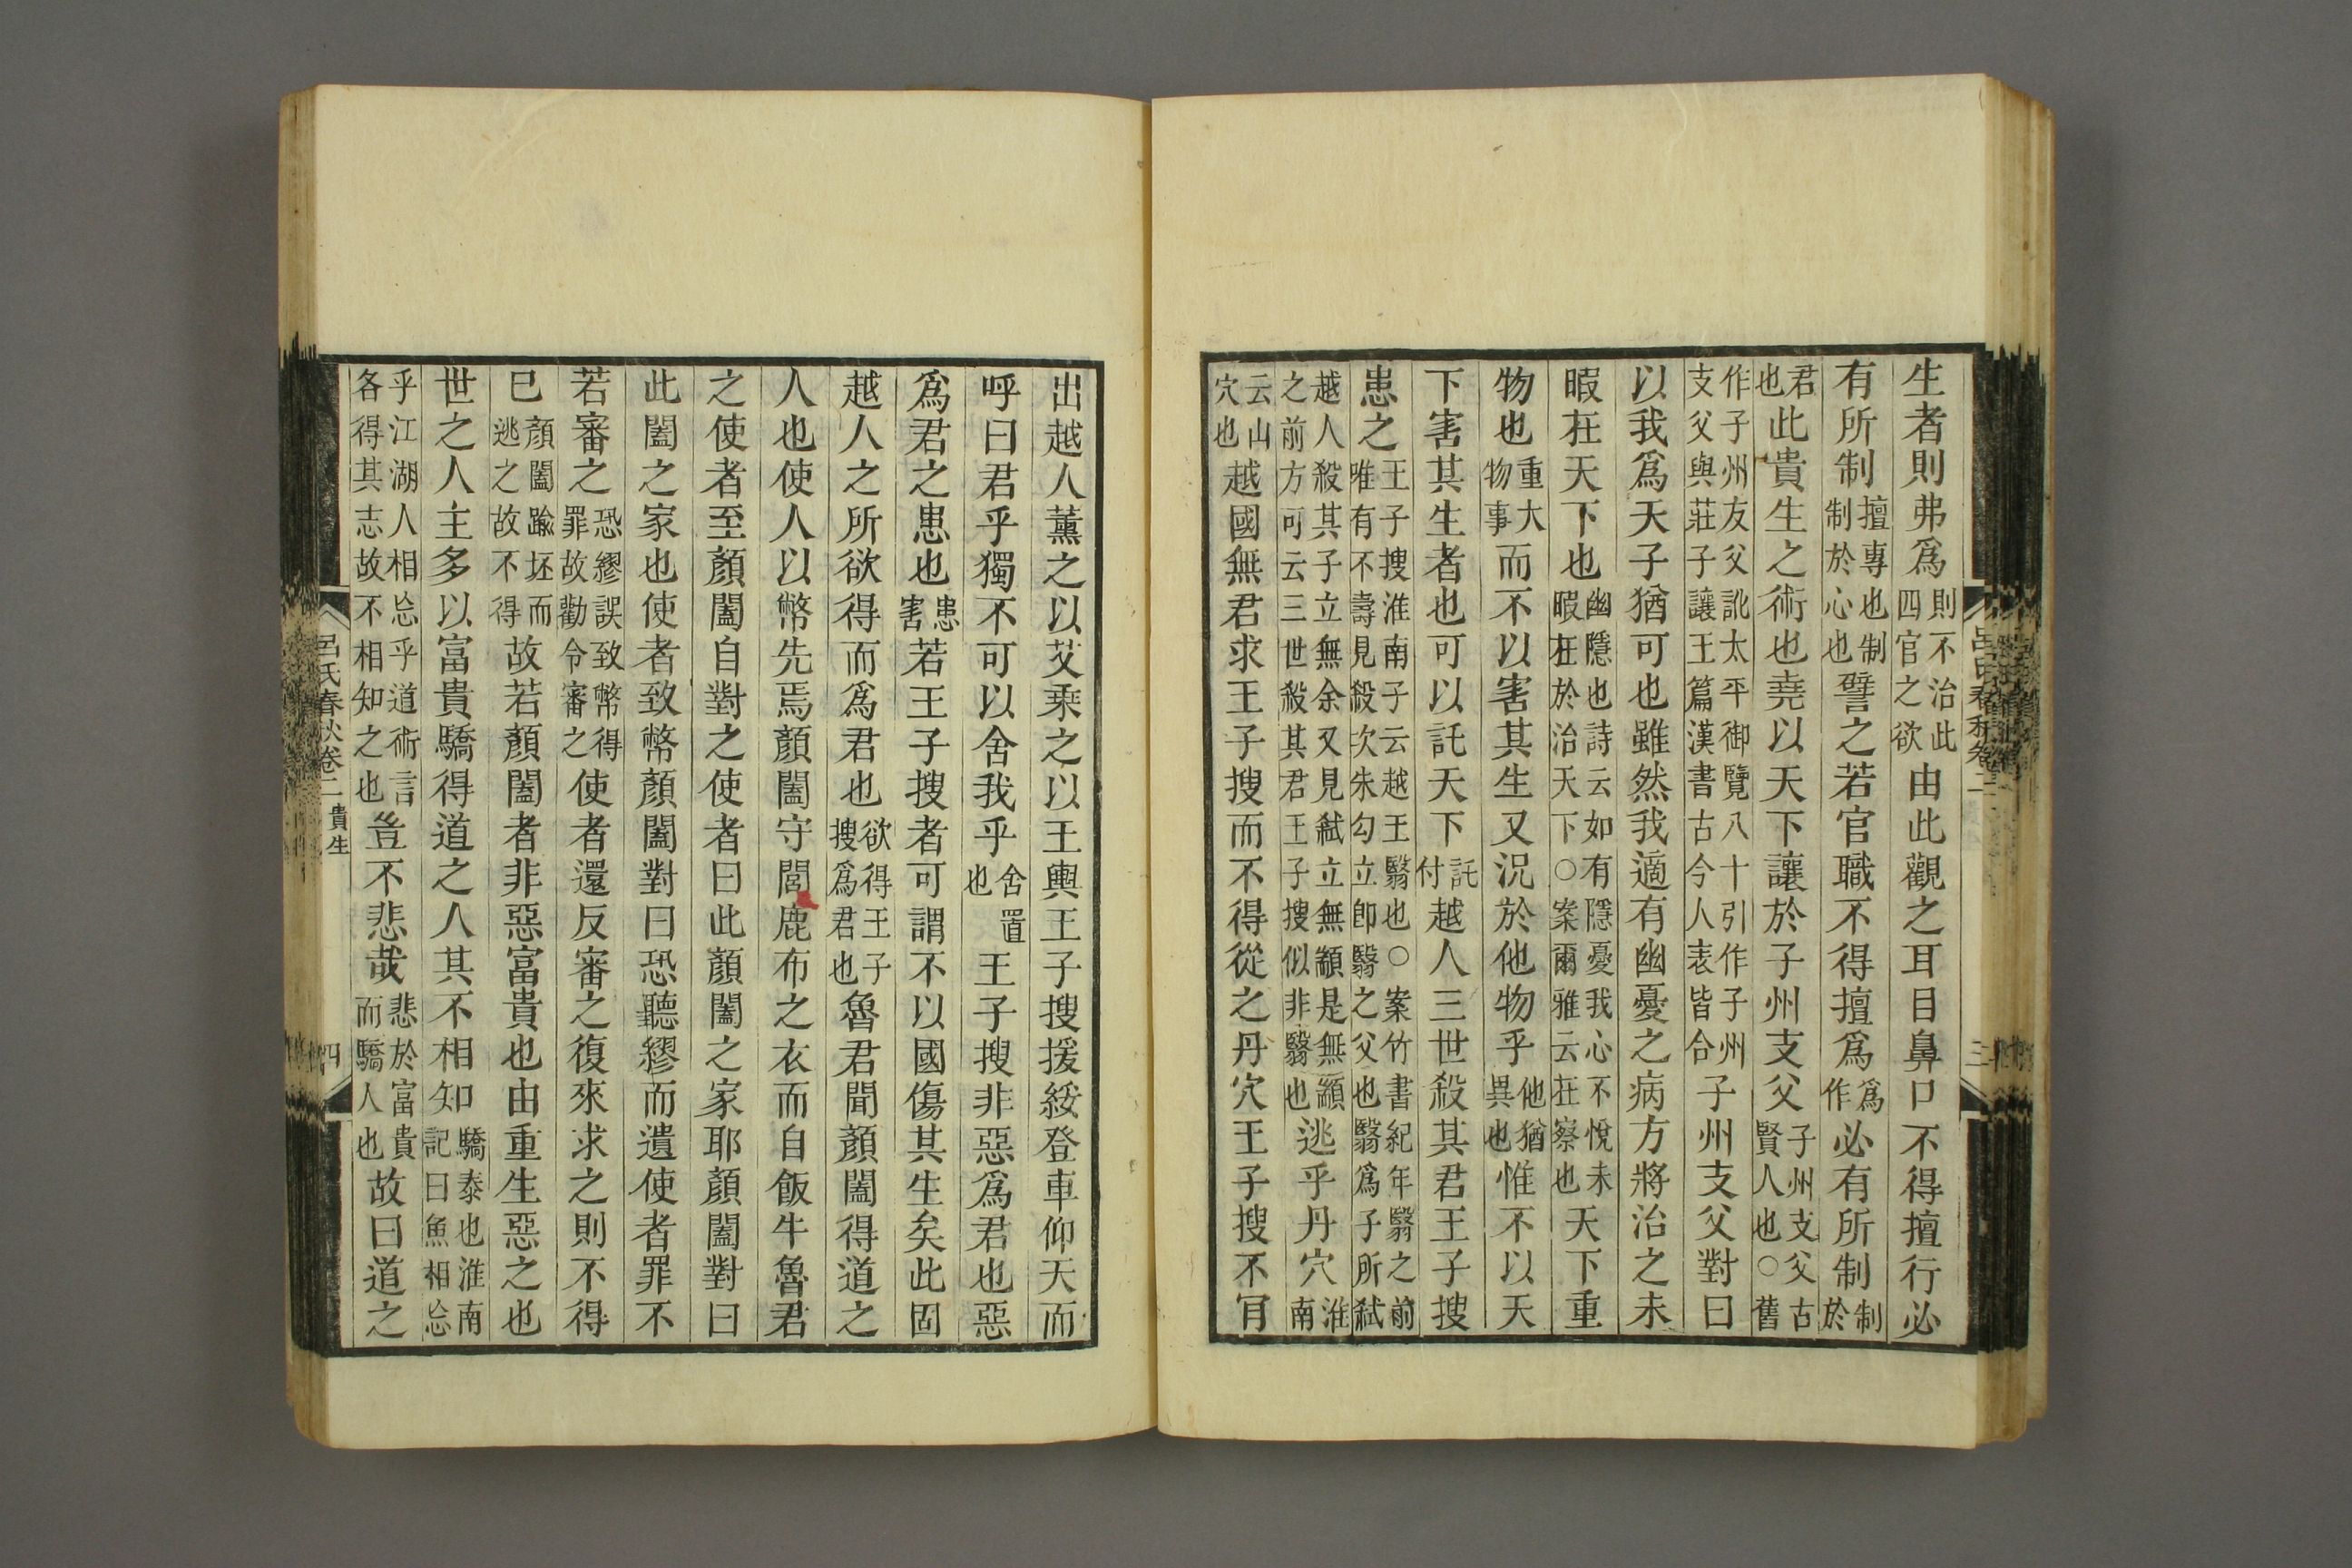 生者則弗爲則不治此四官之欲由此觀之耳目鼻口不得擅行必
有所制擅專也制制於心也譬之若官職不得擅爲爲作必有所制制於
君也此貴生之術也堯以天下讓於子州支父子州支父古賢人也○舊
作子州友父訛太平御覽八十引作子州支父與莊子讓王篇漢書古今人表皆合子州支父對曰
以我爲天子猶可也雖然我適有幽憂之病方將治之未
暇在天下也幽隱也詩云如有隱憂我心不悅未暇在於治天下○案爾雅云在察也天下重
物也重大物事而不以害其生又況於他物乎他猶異也惟不以天
下害其生者也可以託天下託付越人三世殺其君王子搜
患之王子搜淮南子云越王翳也○案竹書紀年翳之前唯有不壽見殺次朱勾立卽翳之父也翳爲子所弑
越人殺其子立無余又見弑立無顓是無顓之前方可云三世殺其君王子搜似非翳也逃乎丹穴淮南
云山穴也越國無君求王子搜而不得從之丹穴王子搜不肯
呂氏春秋卷二
三
出越人薰之以艾乘之以王輿王子搜援綏登車仰天而
呼曰君乎獨不可以舍我乎舍置也王子搜非惡爲君也惡
爲君之患也患害若王子搜者可謂不以國傷其生矣此固
越人之所欲得而爲君也欲得王子搜爲君也魯君聞顏闔得道之
人也使人以幣先焉顏闔守閭鹿布之衣而自飯牛魯君
之使者至顏闔自對之使者曰此顏闔之家耶顏闔對曰
此闔之家也使者致幣顏闔對曰恐聽繆而遺使者罪不
若審之恐繆誤致幣得罪故勸令審之使者還反審之復來求之則不得
已顏闔踰坯而逃之故不得故若顏闔者非惡富貴也由重生惡之也
世之人主多以富貴驕得道之人其不相知驕泰也淮南記曰魚相忘
乎江湖人相忘乎道術言各得其志故不相知之也豈不悲哉悲於富貴而驕人也故曰道之
呂氏春秋卷二 貴生
四